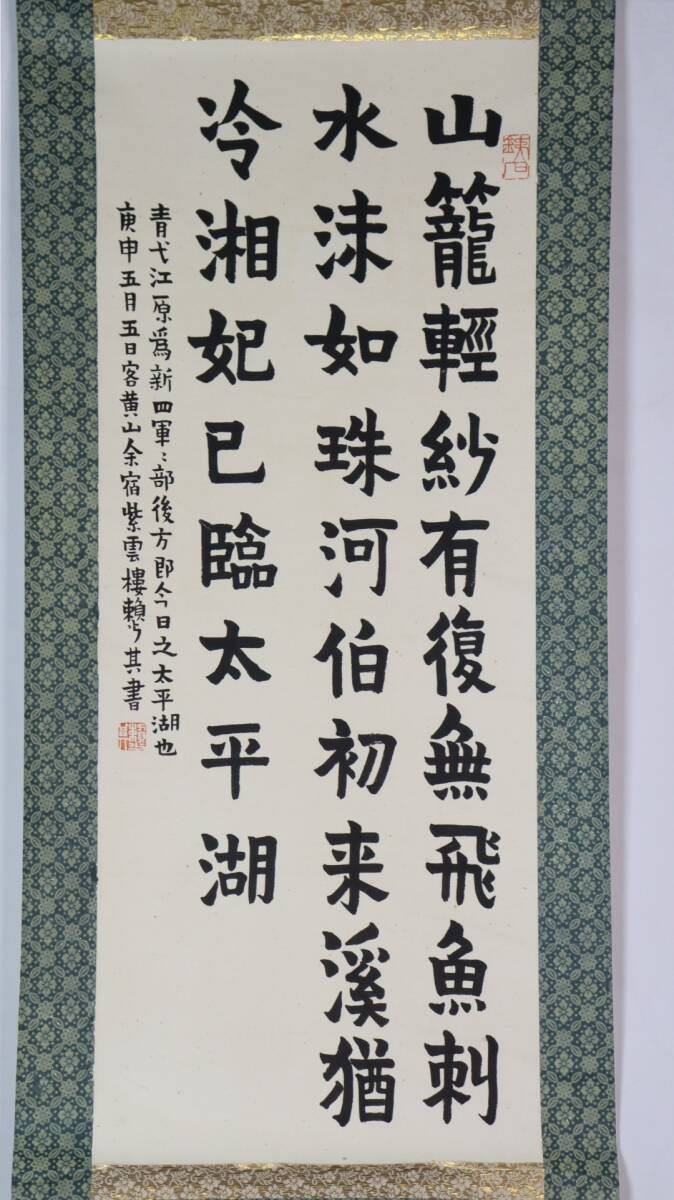 山籠輕紗有復無飛魚刺
水沫如珠河伯初来溪猶
冷湘妃已臨太平湖
青弋江原爲新四軍〻部後方即今日之太平湖也
庚申五月五日客黄山余宿紫雲樓賴少其書